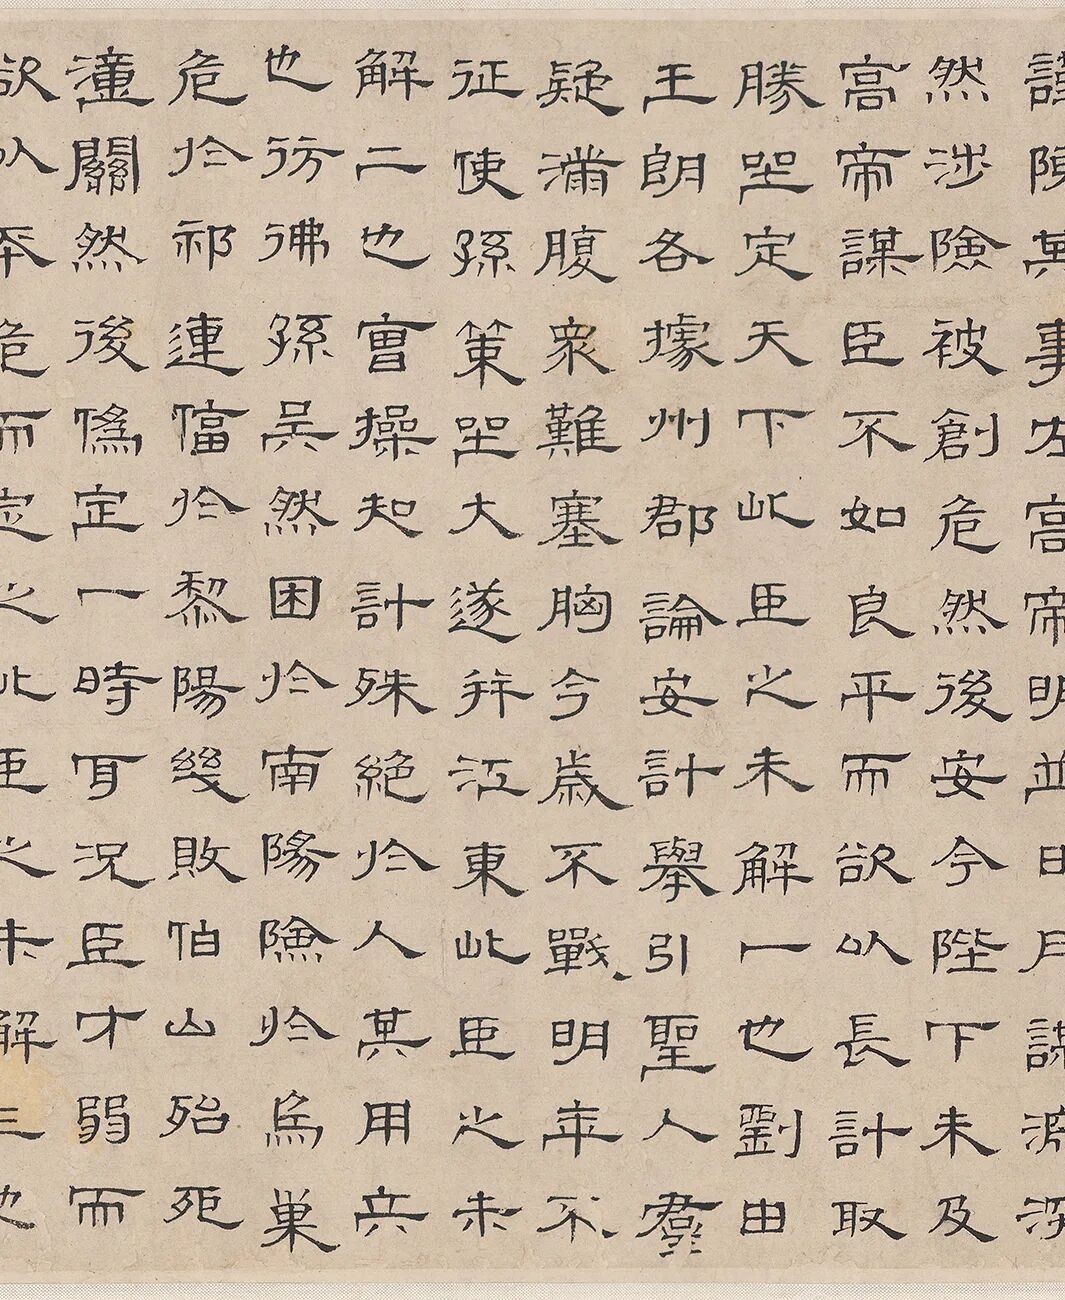 謹陳其事左高帝明並日月謀淵深
然涉險被創危然後安今陛下未及
高帝謀臣不如良平而欲以長計取
勝坐定天下此臣之未解一也劉由
王朗各據州郡論安計舉引聖人羣
疑滿腹衆難塞胸今歲不戰明年不
征使孫策坐大遂并江東此臣之未
解二也曹操知計殊絕於人其用兵
也彷彿孫吳然困於南陽險於烏巢
危於祁連偪於黎陽幾敗伯山殆死
潼關然後僞定一時耳況臣才弱而
欲以不危而定之此臣之未解三也